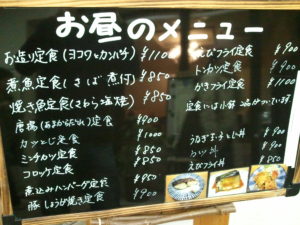 お昼のメニュー
お造り定食(ヨコワとカンパチ) ¥1100
煮魚定食(さば煮付) ¥850
焼き魚定食(さわら塩焼) ¥850
唐揚(あまからだれ)定食 ¥900
カツとじ定食 ¥1000
ミンチカツ定食 ¥850
コロッケ定食 ¥850
煮込みハンバーグ定食 ¥950
豚しょうが焼き定食 ¥900
えびフライ定食 ¥900
トンカツ定食 ¥900
かきフライ定食 ¥1000
定食には小鉢
うなぎ
カツ丼
えびフライ丼 ¥850